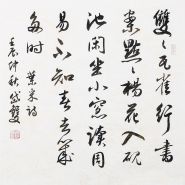 雙〻瓦雀行書
案點〻楊花入硯
池閑坐小窗讀周
易不知春去幾
多時 葉采詩
仲秋